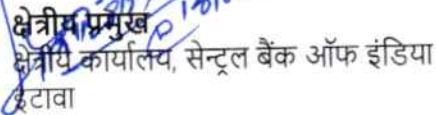 क्षेत्रीय प्रमुख
क्षेत्रीय कार्यालय, सेन्ट्रल बैंक ऑफ इंडिया
इटावा